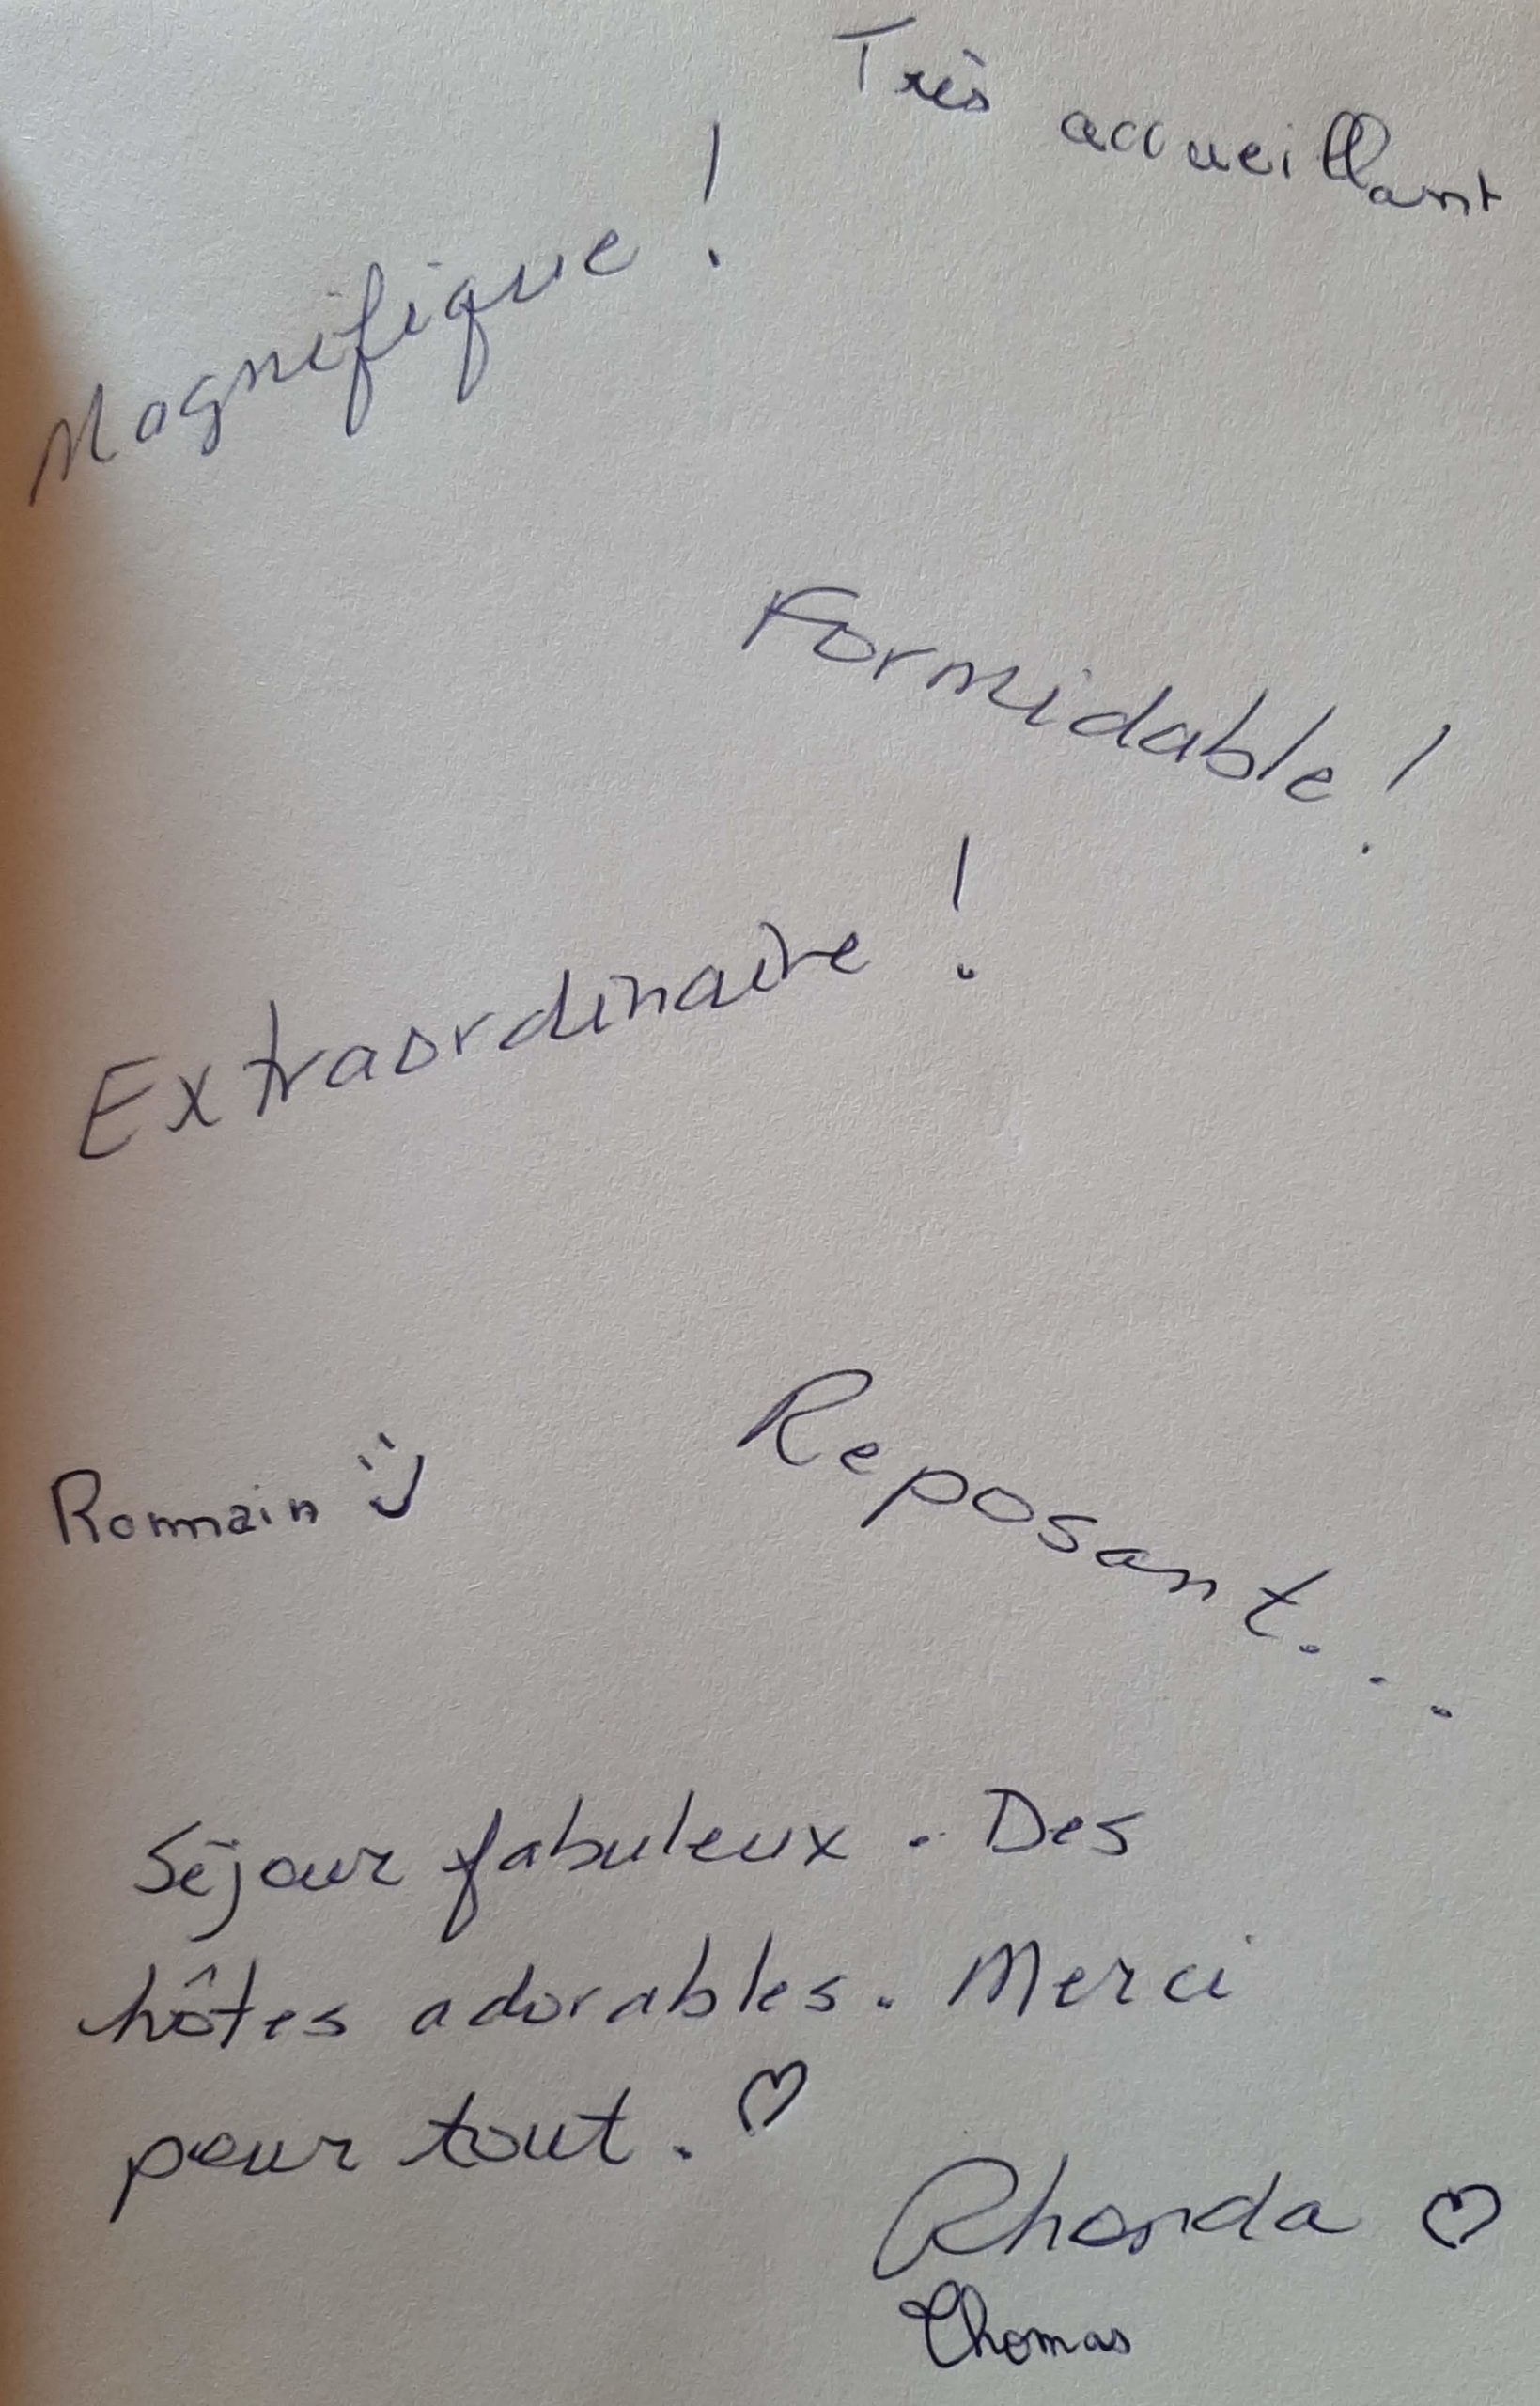 Très accueillant
Magnifique !
Formidable !
Extraordinaire !
Reposant...
Romain :)
Séjour fabuleux. Des
hôtes adorables. Merci
pour tout. ♡
Rhonda ♡
Thomas